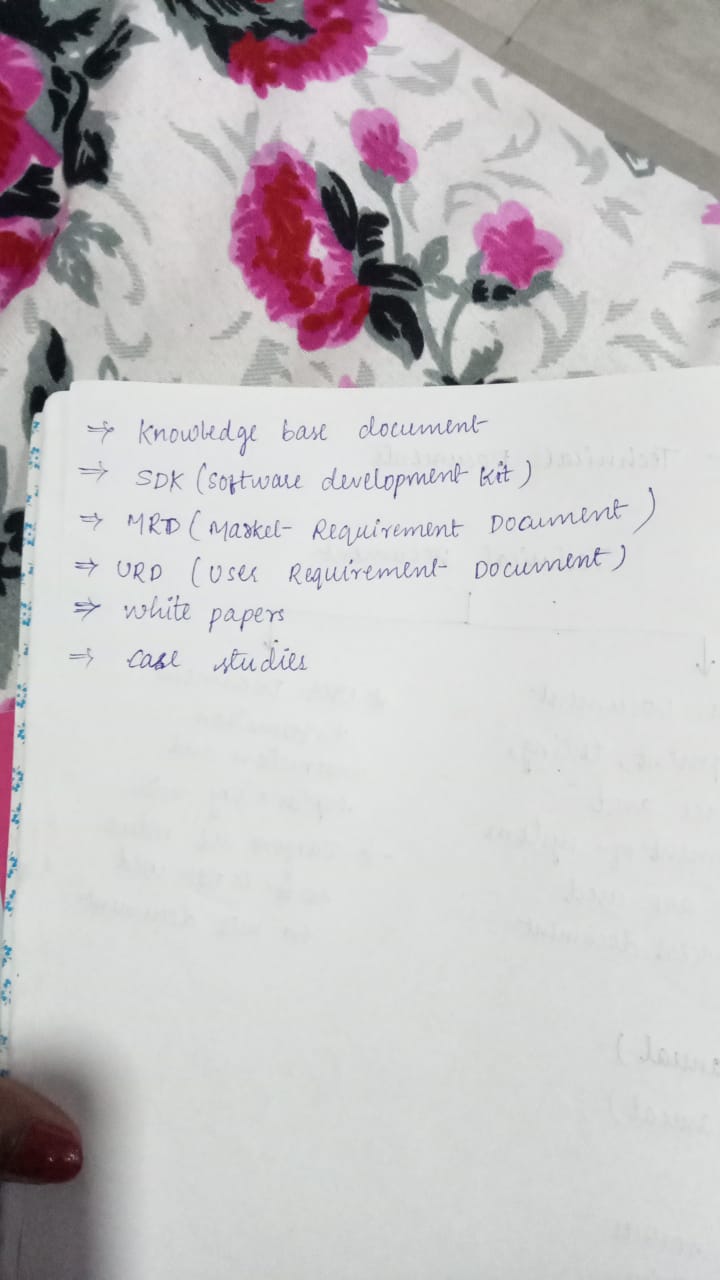 ⇒ Knowledge base document
⇒ SDK (Software development kit)
⇒ MRD (Market Requirement Document)
⇒ URD (User Requirement Document)
⇒ white papers
⇒ case studies